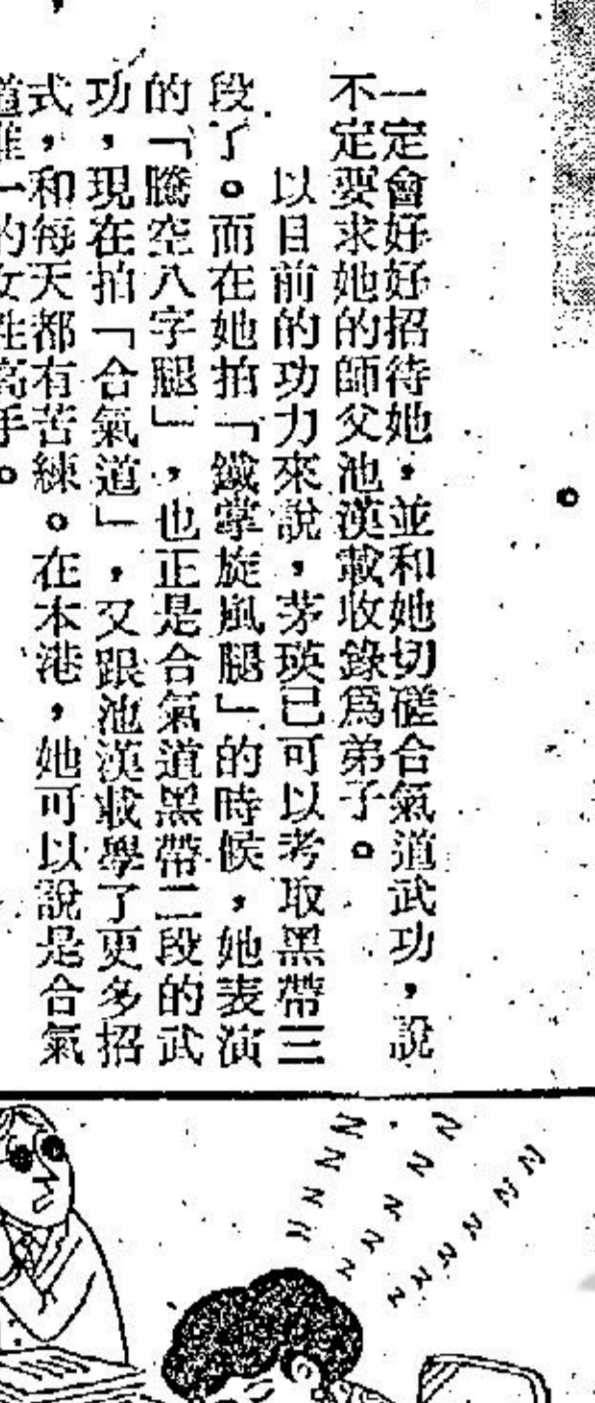 一定會好好招待她，並和她切磋合氣道武功，說
不定要求她的師父池漢載收錄爲弟子。
以目前的功力來說，茅瑛已可以考取黑帶三
段了。而在她拍「鐵掌旋風腿」的時候，她表演
的「騰空八字腿」，也正是合氣道黑帶二段的武
功，現在拍「合氣道」，又跟池漢載學了更多招
式，和每天都有苦練。在本港，她可以說是合氣
道唯一的女性高手。